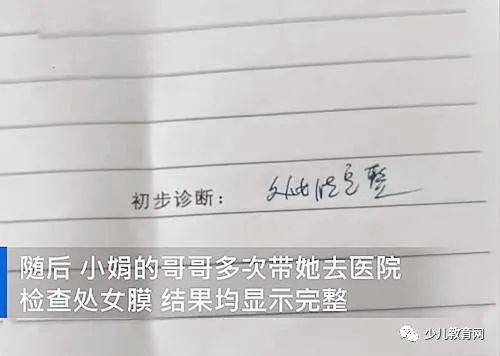 初步诊断:处女膜完整
随后 小娟的哥哥多次带她去医院
检查处女膜 结果均显示完整
少儿教育网